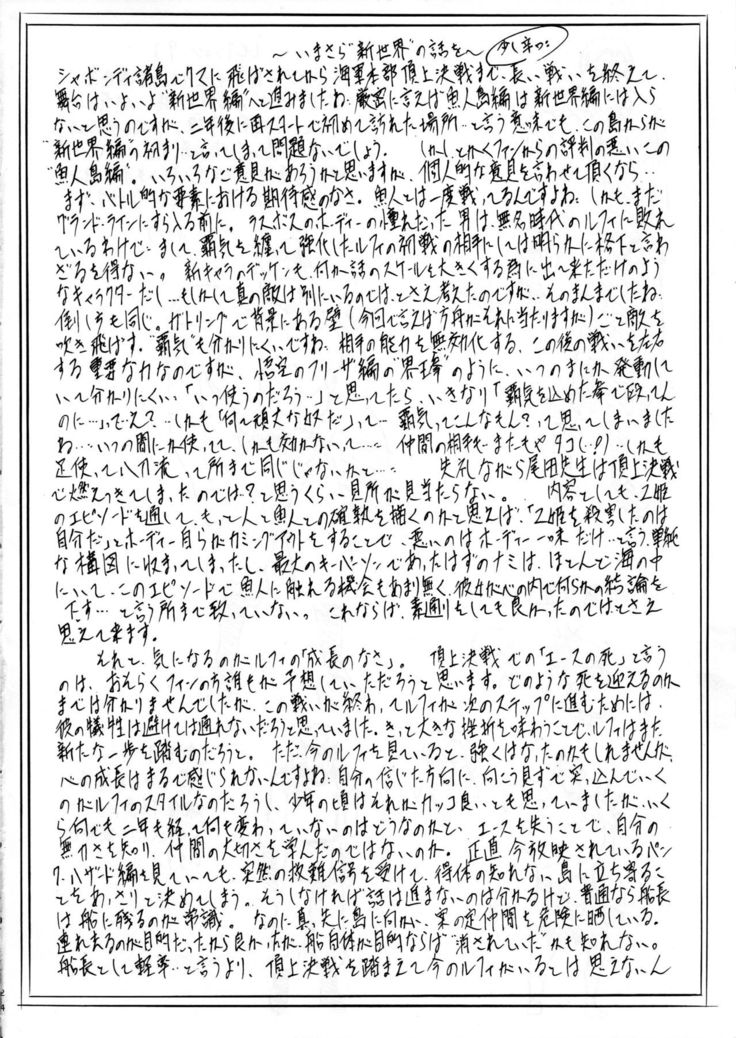 ～いまさら"新世界"の話を～ 少し辛口
シャボンディ諸島でクマに飛ばされてから海軍本部頂上決戦まで、長い戦いを終えて、
舞台はいよいよ"新世界編"へと進みましたね。厳密に言えば魚人島編は新世界編には入ら
ないと思うのですが、二年後に再スタートで初めて訪れた場所…と言う意味でも、この島からが
"新世界編"の初まり…と言ってしまって問題ないでしょう。 しかしとかくファンからの評判の悪いこの
"魚人島編"。いろいろなご意見があろうかと思いますが、個人的な意見を言わせて頂くなら…
まず、バトル的な要素における期待感のなさ。魚人とは一度戦ってるんですよね。しかも、まだ
グランド・ラインにすら入る前に。ラスボスのホーディーの憧れだった男は、無名時代のルフィに敗れ
ているわけで…まして、覇気を纏って強化したルフィの初戦の相手にしては明らかに格下と言わ
ざるを得ない。 新キャラのデッケンも、何か話のスケールを大きくする為に出て来ただけのよう
なキャラクターだし…もしかして真の敵は別にいるのでは、とさえ考えたのですが…そのまんまでしたね。
倒し方も同じ。ガトリングで背景にある壁(今回で言えば方舟がそれに当たりますが)ごと敵を
吹き飛ばす。"覇気"も分かりにくいですね。相手の能力を無効化する、この後の戦いを左右
する重要な力なのですが、悟空のフリーザ編の"界王拳"のように、いつのまにか発動して
いて分かりにくい。「いつ使うのだろう…」と思ってたら、いきなり「覇気を込めた拳で殴ってん
のに…」、でえ?…しかも「何て頑丈な奴だ」って…覇気ってこんなもん?って思ってしまいました
ね…いつの間にか使ってて、しかも効かないって… 仲間の相手も、またもやタコ(…?)…しかも
足使って八刀流って所まで同じじゃないかと… 失礼ながら尾田先生は頂上決戦
で燃えつきてしまったのでは?と思うくらい見所が見当たらない。 内容としても、乙姫
のエピソードを通して、もっと人と魚人との確執を描くのかと思えば、「乙姫を殺害したのは
自分だ」とホーディー自らがカミングアウトをすることで、悪いのは"ホーディー一味"だけ…と言う単純
な構図に収まってしまったし、最大のキーパーソンであったはずのナミは、ほとんど海の中
にいて、このエピソードで魚人に触れる機会もあまり無く、彼女が心の内で何らかの結論を
下す…と言う所まで致っていない。 これならば、素通りをしても良かったのではとさえ
思えて来ます。
それと、気になるのがルフィの「成長のなさ」。 頂上決戦での「エースの死」と言う
のは、おそらくファンの方誰もが予想していただろうと思います。どのような死を迎えるのか
までは分かりませんでしたが、この戦いが終わってルフィが次のステップに進むためには、
彼の犠牲は避けては通れないだろうと思っていました。きっと大きな挫折を味わうことで、ルフィはまた
新たな一歩を踏むのだろうと。 ただ、今のルフィを見ていると、強くはなったのかもしれませんが、
心の成長はまるで感じられないんですよね。自分の信じた方向に、向こう見ずで突っ込んでいく
のがルフィのスタイルなのだろうし、少年の頃はそれがカッコ良いとも思っていましたが、いく
ら何でも二年も経って何も変わっていないのはどうなのかと。エースを失うことで、自分の
無力さを知り、仲間の大切さを学んだのではないのか。 正直今放映されているパン
ク・ハザード編を見ていても、突然の救難信号を受けて、得体の知れない島に立ち寄るこ
とをあっさりと決めてしまう。そうしなければ話は進まないのは分かるけど、普通なら船長
は船に残るのが常識。 なのに真っ先に島に向かい、案の定仲間を危険に晒している。
連れ去るのが目的だったから良かったが、船自体が目的ならば"消されていた"かも知れない。
船長として軽率…と言うより、頂上決戦を踏まえて今のルフィがいるとは思えないん
24